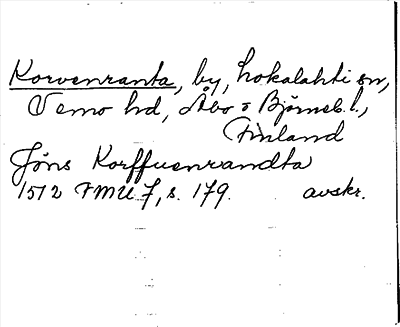 Korvenranta, by, Lokalahti sn,
Vemo hd, Åbo o Björneb. l.,
Finland
Jöns Korffuenrandta
1512 FMU 7, s. 179. avskr.